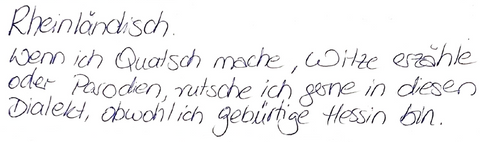 Rheinländisch.
Wenn ich Quatsch mache, Witze erzähle
oder Parodien, rutsche ich gerne in diesen
Dialekt, obwohl ich gebürtige Hessin bin.